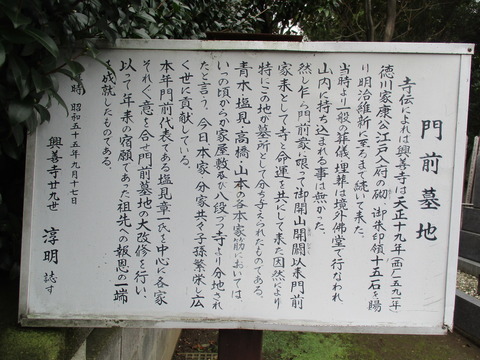 門前墓地
寺伝によれば興善寺は天正十九年(西一五九一年)
徳川家康公江戸入府の砌、御朱印領十五石を賜
り明治維新に至るまで続いて来た。
当時より一般の葬儀、埋葬は境外佛堂で行なわれ
山内に持ち込まれる事は無かった。
然し乍ら門前衆に限って御開山開闢以来門前
家来として寺と命運を共にして来た因縁により
特にこの地が墓所として分ち与えられたものである。
青木、塩見、高橋、山本の各本家筋においては、
いつの頃からか家屋敷及び八段づつ寺より分地され
たと言う。今日本家、分家共々子孫繁栄し広
く世に貢献している。
本年門前代表である塩見章一氏を中心に各家
それぞれ意を合せ門前墓地の大改修を行い、
以って年来の宿願であった祖先への報恩の一端
を成就したものである。
時 昭和五十五年九月十七日
興善寺廿九世 淳明 誌す